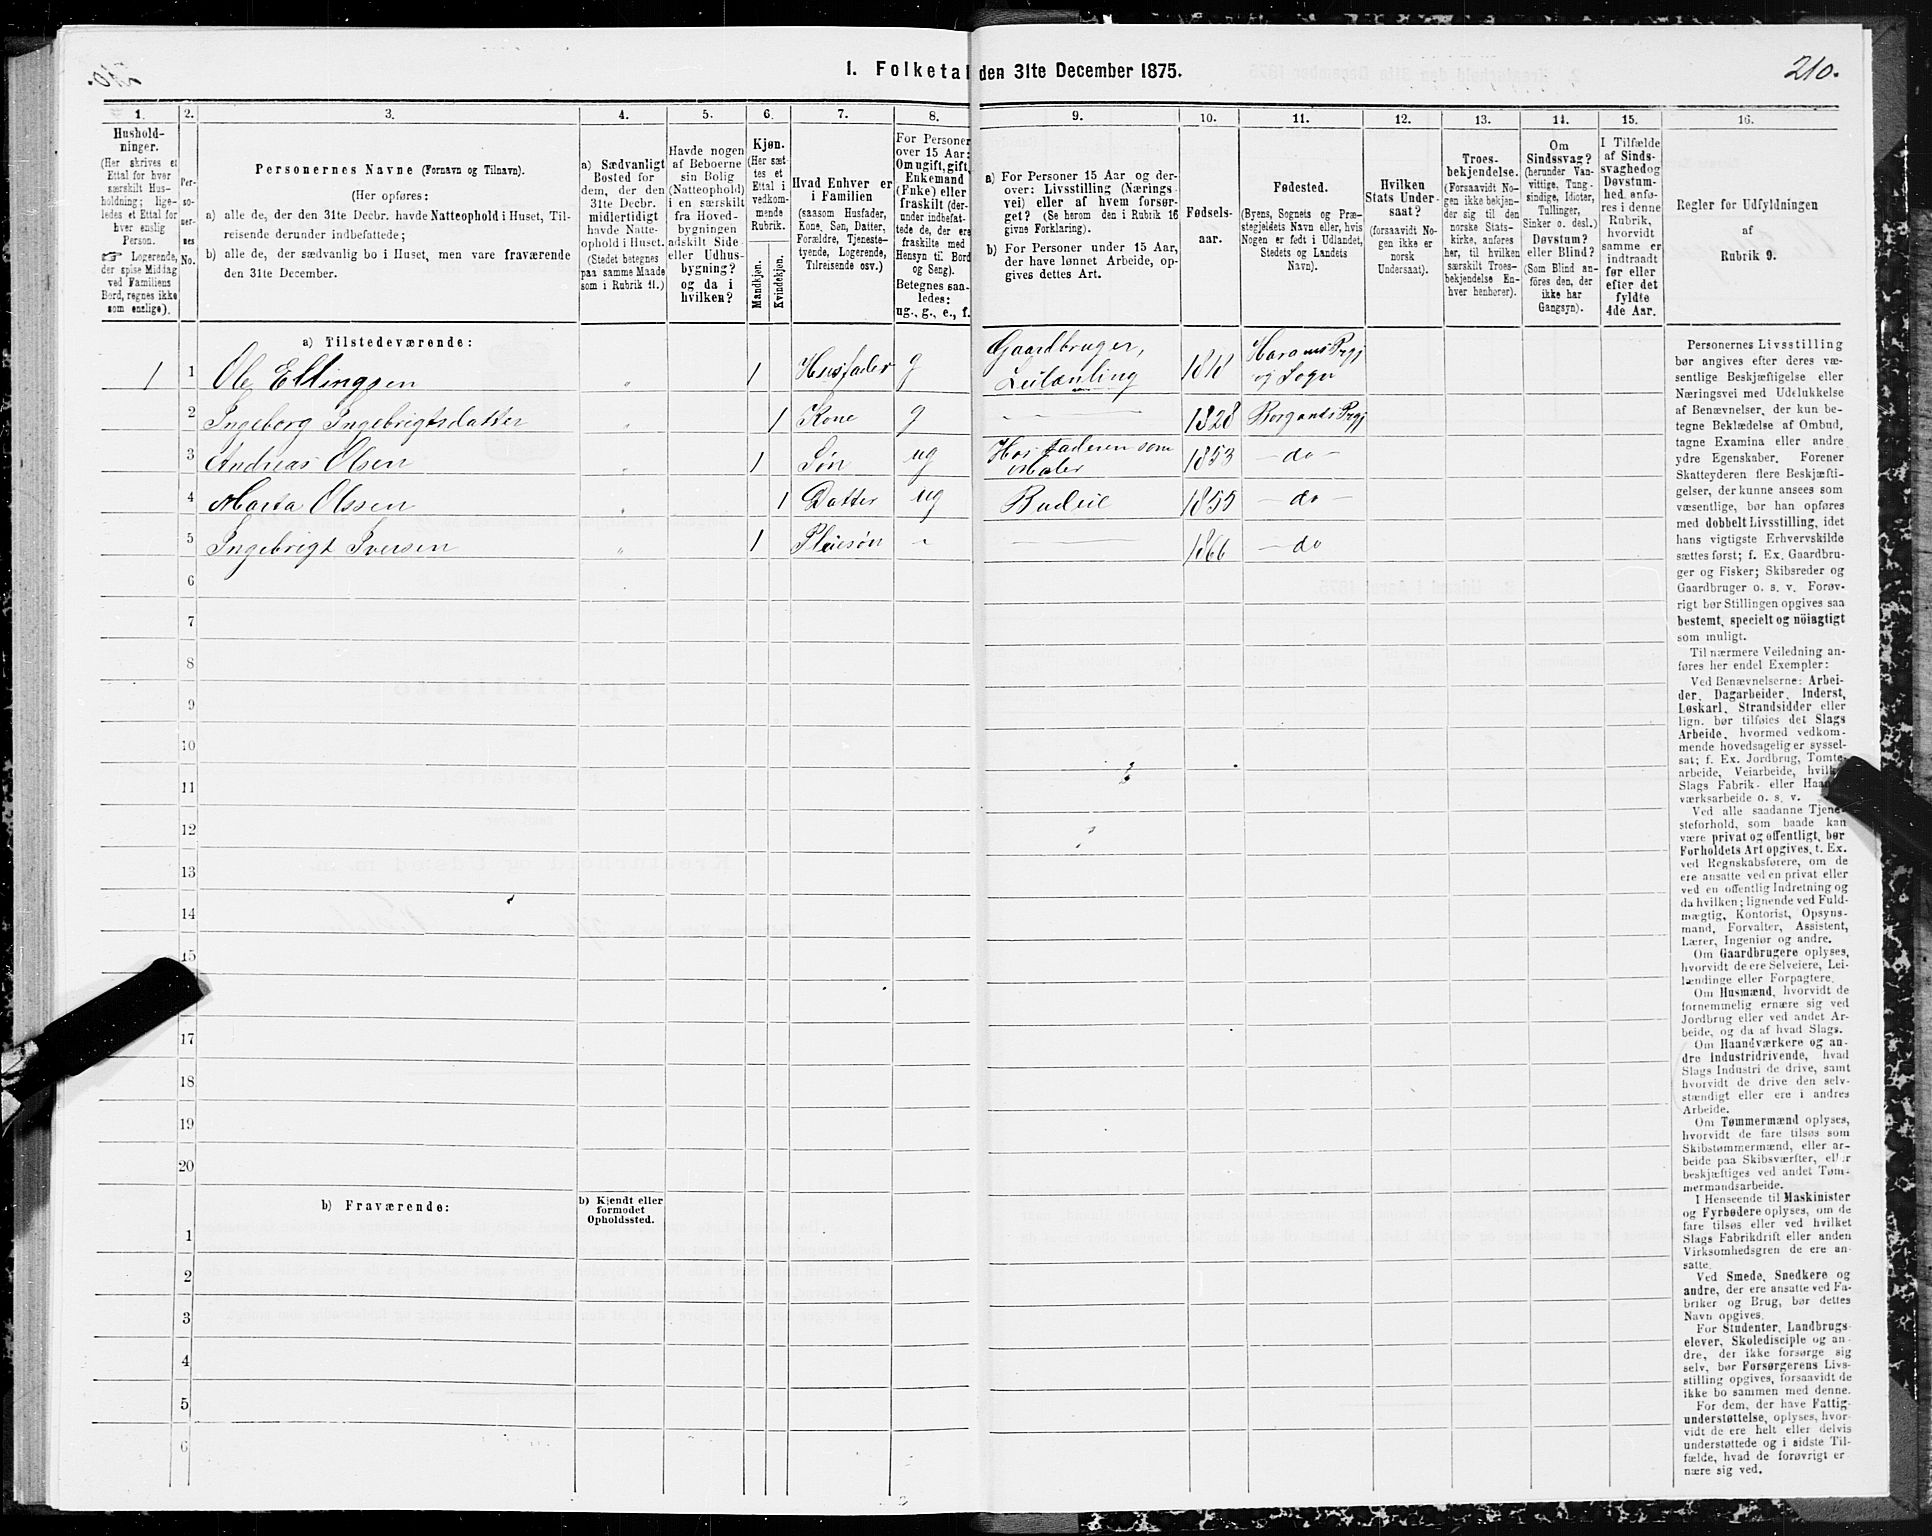 210.
I. Folketal den 31te December 1875.
210.
1.
Hushold-
ninger.
(Her skrives et
Ettal for hver
særskilt Hus-
holdning; lige-
ledes et Ettal for
hver enslig
Person.
☞ Logerende,
der spise Middag
ved Familiens
Bord, regnes ikke
som enslige).
2.
Per-
so-
ner-
nes
No.
3.
Personernes Navne (Fornavn og Tilnavn).
(Her opføres:
a) alle de, der den 31te Decbr. havde Natteophold i Huset, Til-
reisende derunder indbefattede;
b) alle de, der sædvanlig bo i Huset, men vare fraværende
den 31te December.
4.
a) Sædvanligt
Bosted for
dem, der den
31te Decbr.
midlertidigt
havde Natte-
ophold i Huset.
(Stedet betegnes
paa samme Maade
som i Rubrik 11.)
5.
Havde nogen
af Beboerne
sin Bolig
(Natteophold)
i en særskilt
fra Hoved-
bygningen
adskilt Side-
eller Udhus-
bygning?
og da i
hvilken?
6.
Kjøn.
(Her sæt-
tes et
Ettal i
vedkom-
mende
Rubrik.
Mandkjøn.
Kvindekjøn.
7.
Hvad Enhver er
i Familien
(saasom Husfader,
Kone, Søn, Datter,
Forældre, Tjeneste-
tyende, Logerende,
Tilreisende osv.)
8.
For Personer
over 15 Aar:
Om ugift, gift,
Enkemand
(Enke) eller
fraskilt (der-
under indbefat-
tede de, der ere
fraskilte med
Hensyn til Bord
og Seng).
Betegnes saa-
ledes:
ug., g., e., f.
9.
a) For Personer 15 Aar og der-
over: Livsstilling (Nærings-
vei) eller af hvem forsør-
get? (Se herom den i Rubrik 16
givne Forklaring).
b) For Personer under 15 Aar,
der have lønnet Arbeide, op-
gives dettes Art.
10.
Fødsels-
aar.
11.
Fødested.
(Byens, Sognets og Præ-
stegjeldets Navn eller, hvis
Nogen er født i Udlandet,
Stedets og Landets
Navn).
12.
Hvilken
Stats Under-
saat?
(forsaavidt No-
gen ikke er
norsk
Undersaat).
13.
Troes-
bekjendelse.
(Forsaavidt No-
gen ikke bekjen-
der sig til den
norske Stats-
kirke, anføres
her, til hvilken
særskilt Troes-
bekjendelse En-
hver henhører).
14.
Om
Sindssvag?
(herunder Van-
vittige, Tung-
sindige, Idioter,
Tullinger,
Sinker o. desl.)
Døvstum?
eller Blind?
(Som Blind an-
føres den, der
ikke har
Gangsyn).
15.
I Tilfælde
af Sinds-
svaghed og
Døvstum-
hed anfø-
res i denne
Rubrik,
hvorvidt
samme er
indtraadt
før eller
efter det
fyldte
4de Aar.
16.
Regler for Udfyldningen
af
Rubrik 9.
a) Tilstedeværende:
1 1 Ole Ellingsen " 1 Husfader g Gaardbruger, Leilænding 1811 Harams Prgj og Sogn
2 Ingeborg Ingebrigtsdatter " 1 Kone g — 1828 Borgunds Prgj
3 Andreas Olsen " 1 Søn ug Hos Faderen som Maler 1853 — do —
4 Marta Olssen " 1 Datter ug Budeie 1855 — do —
5 Ingebrigt Iversen " 1 Pleiesøn - 1866 — do
6
7
8
9
10
11
12
13
14
15
17
18
19
20
b) Fraværende:
b) Kjendt eller
formodet
Opholdssted.
1
2
3
4
5
6
Personernes Livsstilling
bør angives efter deres væ-
sentlige Beskjæftigelse eller
Næringsvei med Udelukkelse
af Benævnelser, der kun be-
tegne Beklædelse af Ombud,
tagne Examina eller andre
ydre Egenskaber. Forener
Skatteyderen flere Beskjæfti-
gelser, der kunne ansees som
væsentlige, bør han opføres
med dobbelt Livsstilling, idet
hans vigtigste Erhvervskilde
sættes først; f. Ex. Gaardbru-
ger og Fisker; Skibsreder og
Gaardbruger o. s. v. Forøv-
rigt bør Stillingen opgives saa
bestemt, specielt og nöiagtigt
som muligt.
Til nærmere Veiledning an-
føres her endel Exempler:
Ved Benævnelserne: Arbei-
der, Dagarbeider, Inderst,
Løskarl, Strandsidder eller
lign. bør tilføies det Slags
Arbeide, hvormed vedkom-
mende hovedsagelig er syssel-
sat; f. Ex. Jordbrug, Tomte-
arbeide, Veiarbeide, hvilket
Slags Fabrik- eller Haand-
værksarbeide o. s. v.
Ved alle saadanne Tjene-
steforhold, som baade kan
være privat og offentligt, bør
Forholdets Art opgives, t. Ex.
ved Regnskabsførere, om de
ere ansatte ved en privat eller
ved en offentlig Indretning og
da hvilken; lignende ved Fuld-
mægtig, Kontorist, Opsyns-
mand, Forvalter, Assistent,
Lærer, Ingeniør og andre.
Om Gaardbrugere oplyses,
hvorvidt de ere Selveiere, Lei-
lændinge eller Forpagtere.
Om Husmænd, hvorvidt de
fornemmelig ernære sig ved
Jordbrug eller ved andet Ar-
beide, og da af hvad Slags.
Om Haandværkere og an-
dre Industridrivende, hvad
Slags Industri de drive, samt
hvorvidt de drive den selv-
stændigt eller ere i andres
Arbeide.
Om Tømmermænd oplyses,
hvorvidt de fare tilsøs som
Skibstømmermænd, eller ar-
beide paa Skibsværfter, eller
beskjæftiges ved andet Tøm-
mermandsarbeide.
I Henseende til Maskinister
og Fyrbødere oplyses, om de
fare tilsøs eller ved hvilket
Slags Fabrikdrift eller anden
Virksomhedsgren de ere an-
satte.
Ved Smede, Snedkere og
andre, der ere ansatte ved Fa-
briker og Brug, bør dettes
Navn opgives.
For Studenter, Landbrugs-
elever, Skoledisciple og an-
dre, der ikke forsørge sig
selv, bør Forsørgerens Livs-
stilling opgives, forsaavidt de
ikke bo sammen med denne.
For dem, der have Fattig-
understøttelse, oplyses, hvor-
vidt de ere helt eller delvis
understøttede og i sidste Til-
fælde, hvad de forøvrigt er-
nære sig ved.